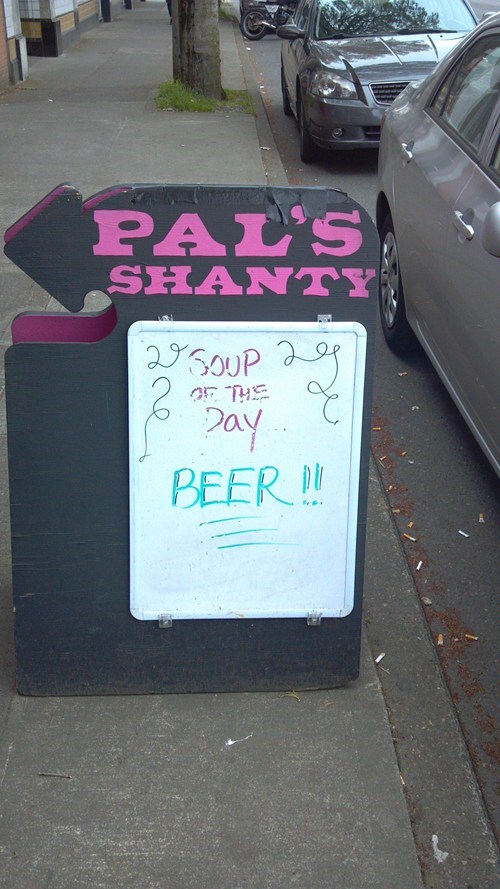 PAL'S
SHANTY
SOUP
OF THE
Day
BEER !!